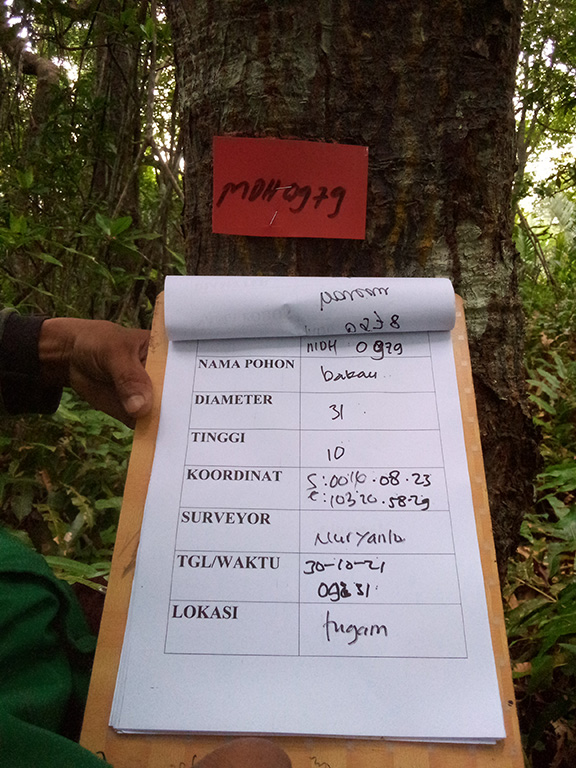 MDH 0979
0238
MDH 0979
NAMA POHON bakau
DIAMETER 31
TINGGI 10
KOORDINAT S:0016.08.23
E:10320.58.29
SURVEYOR Nuryanto
TGL/WAKTU 30-10-21
09:31
LOKASI tugam